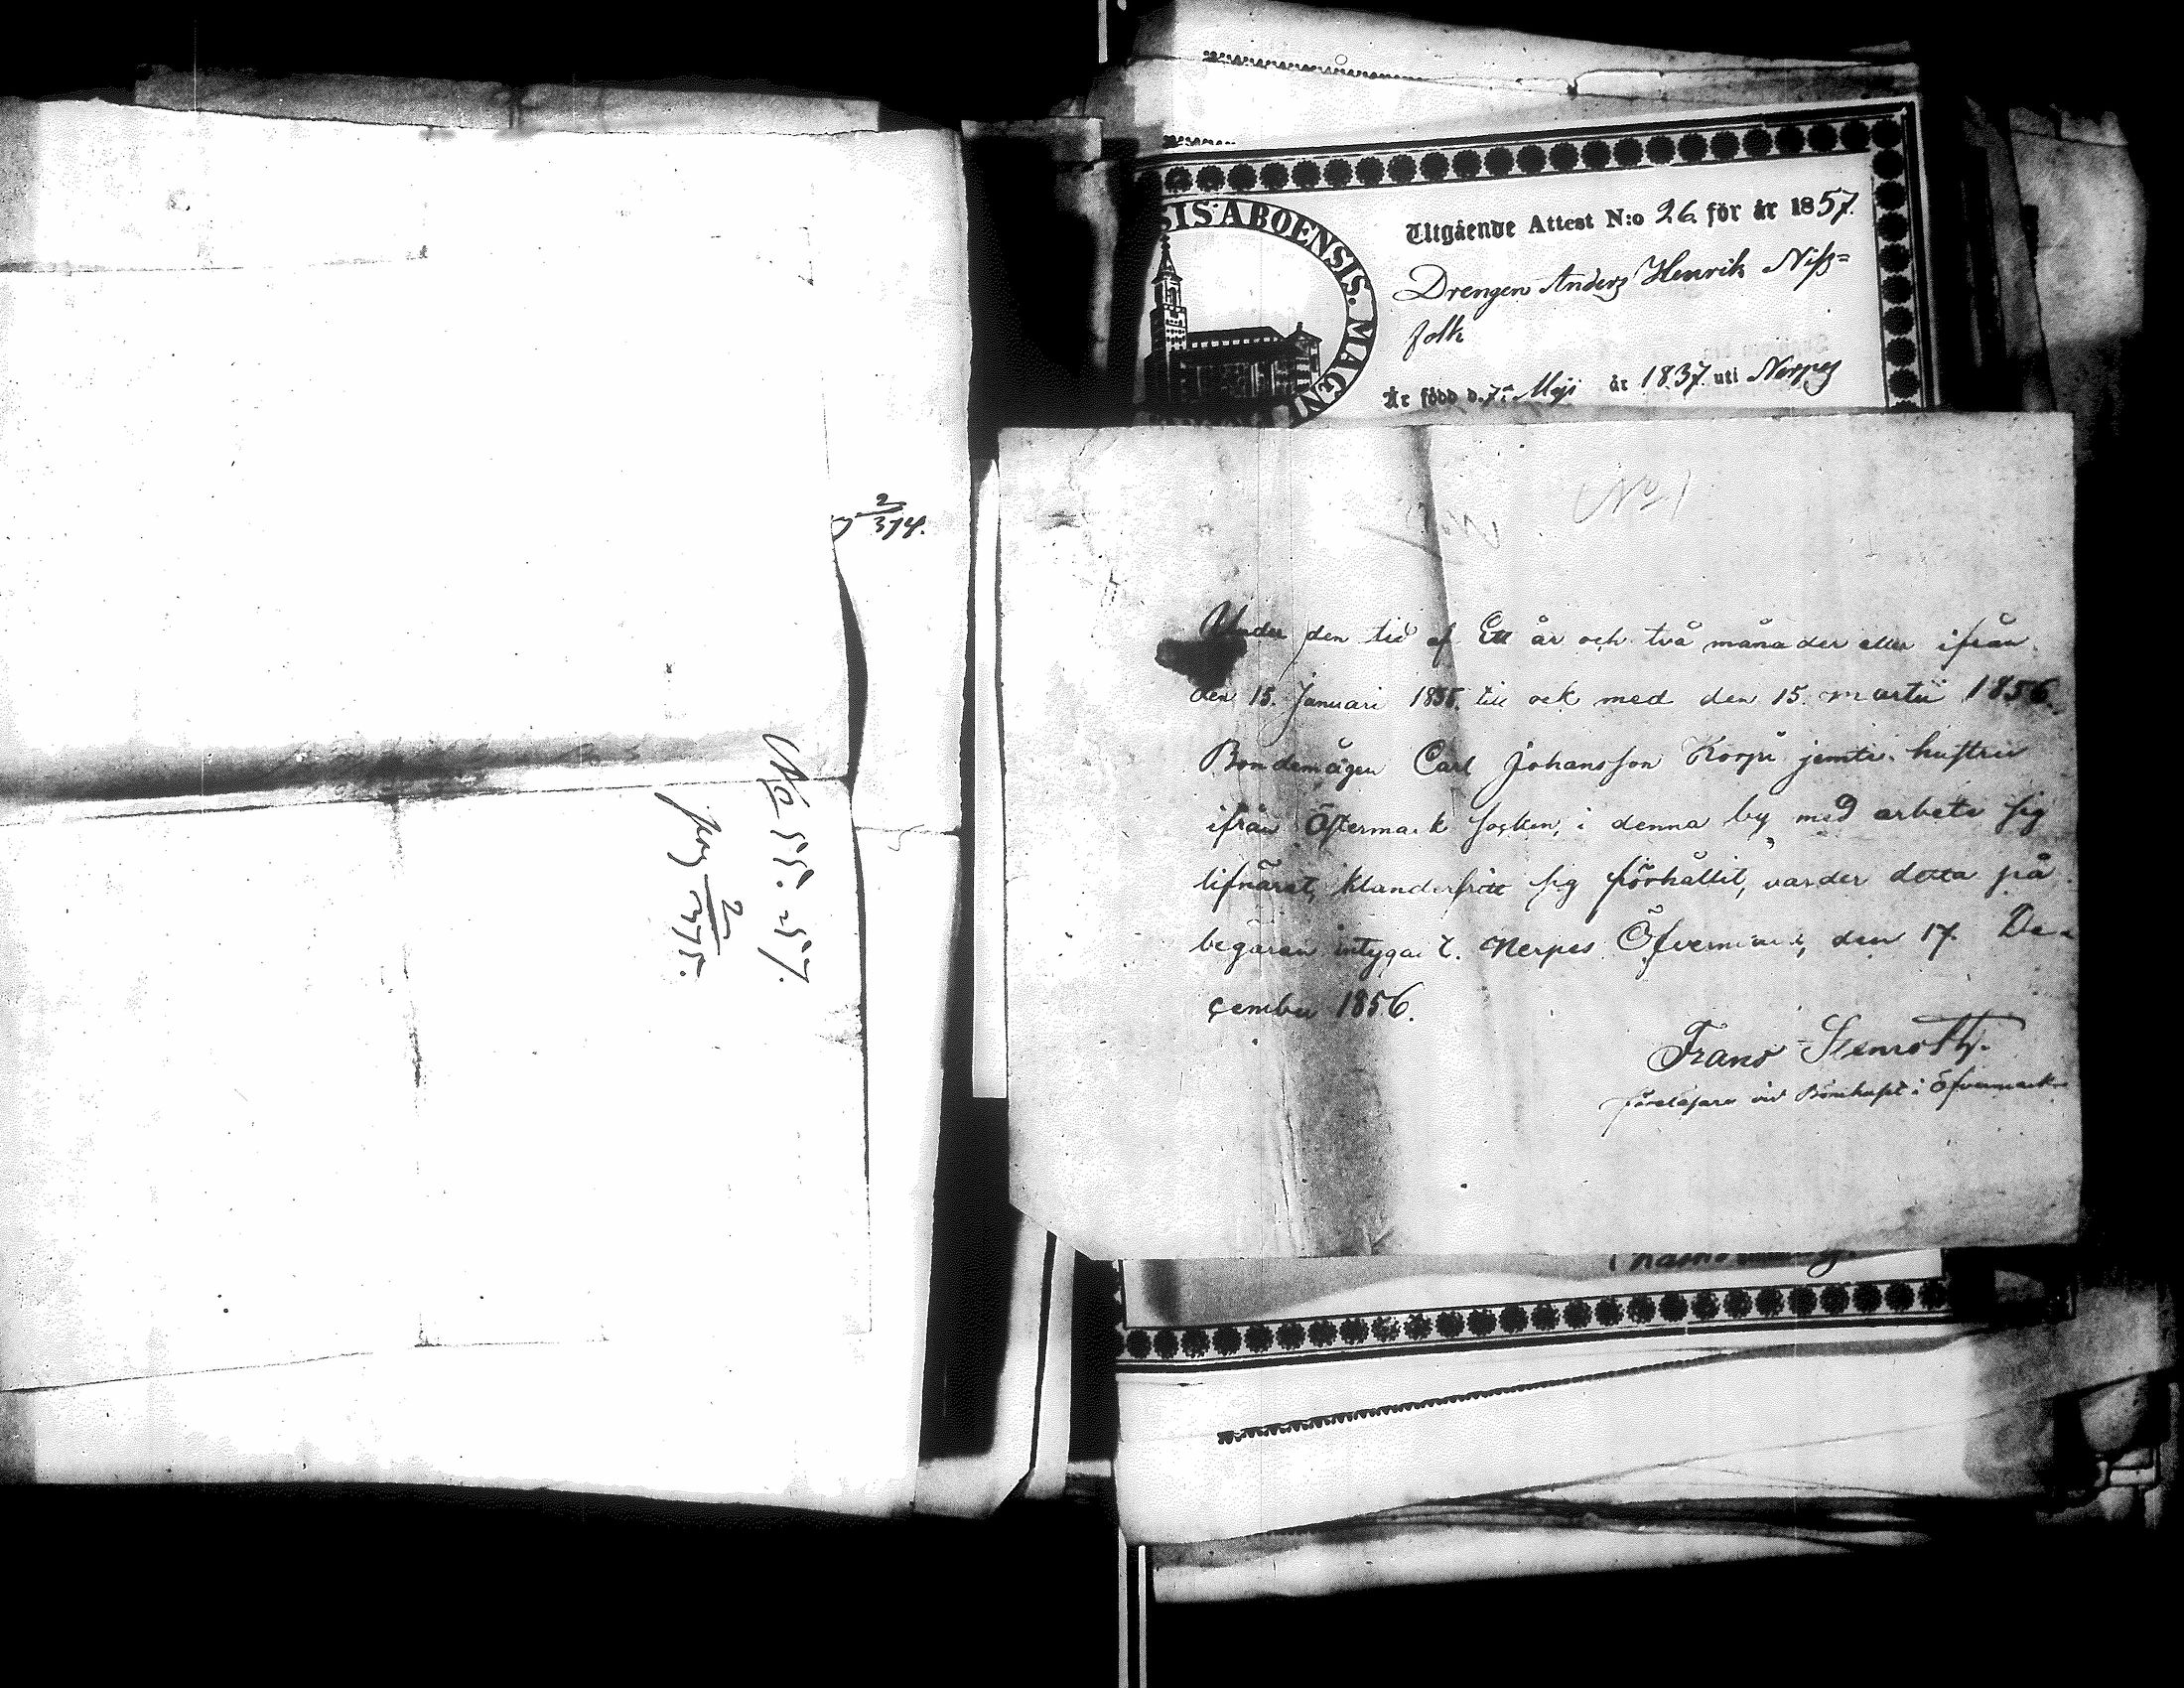 2
314.
No 55. 57.
pag 2
375.
SIS ABOENSIS. MAGNI
Utgående Attest N:o 26 för år 1857.
Drengen Anders Henrik Niss=
folk
Är född d. 7:e Maji år 1837. uti Nerpes
No 1
Under den tid af Ett år och två månader eller ifrån
den 15. Januari 1855. till ock med den 15. martii 1856.
Bondemågen Carl Johansson Korpi jemte hustru
ifrån Östermark socken, i denna by med arbete sig
lifnärat, klanderfritt sig förhållit, varder detta på
begäran intygat. Nerpes Öfvermark, den 17. De-
cember 1856.
Frans Stenroth.
föreläsare vid Bönehuset i Öfvermark